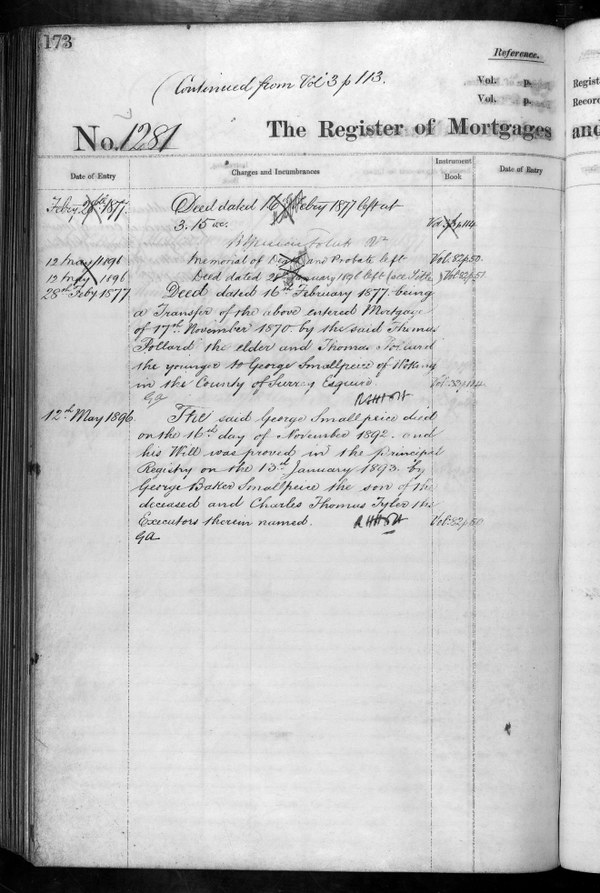 173
Reference.
(Continued from Vol 3 p 113.
Vol. p.
Vol. p.
No. 1281
The Register of Mortgages and
Regist
Record
Date of Entry
Charges and Incumbrances
Instrument Book
Date of Entry
Feby 28th 1877.
Deed dated 16 Febry 1877 left at
3.15
Vol 33 p 114
12 May 1896
Memorial of and Probate left
Vol. 82 p 50.
12 May 1896
Deed dated January 1896 left
Vol 82 p 51
28th Feby 1877
Deed dated 16th February 1877. being
a Transfer of the above entered Mortgage
of 17th November 1870. by the said Thomas
Pollard the elder and Thomas Pollard
the younger to George Smallpeice of Woking
in the County of Surrey Esquire
Vol. 33 p 114
GA
12th May 1896
The said George Smallpeice died
on the 16th day of November 1892. and
his Will was proved in the principal
Registry on the 13th January 1893. by
George Baker Smallpeice the son of the
deceased and Charles Thomas Tyler the
Executors therein named.
Vol. 82 p 50
GA